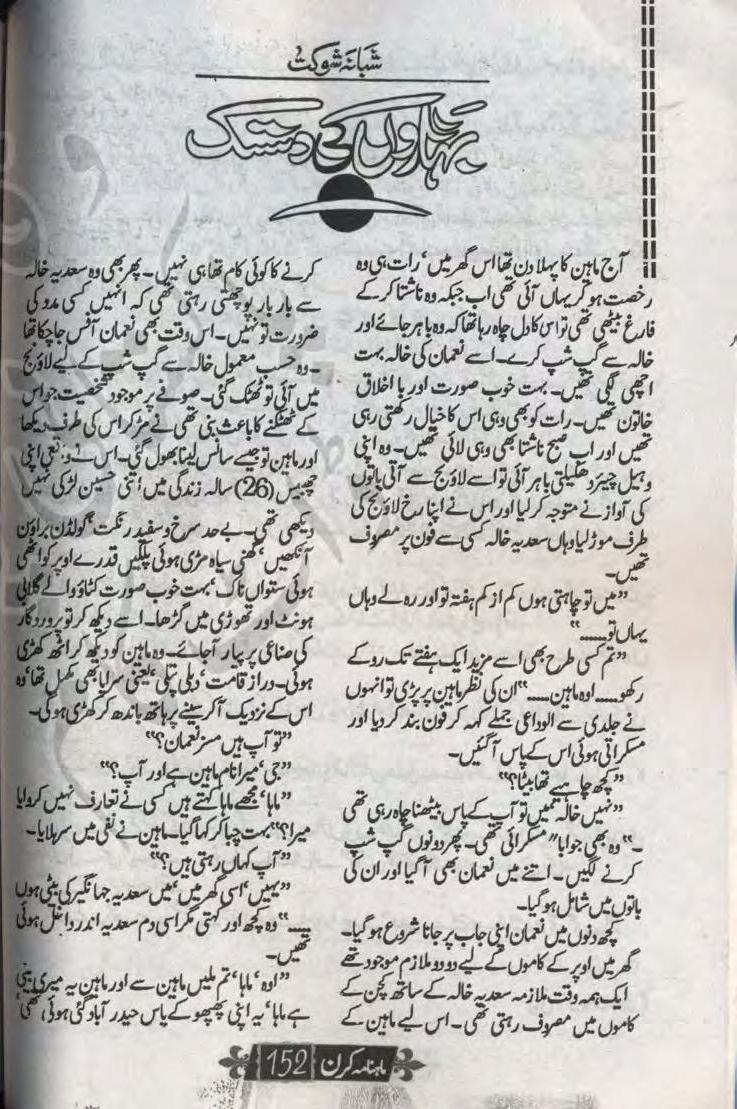 شبانہ شوکت
بہاروں کی دستک
آج ماہین کا پہلا دن تھا اس گھر میں، رات ہی وہ
رخصت ہو کر یہاں آئی تھی اب جبکہ وہ ناشتا کر کے
فارغ بیٹھی تھی تو اس کا دل چاہ رہا تھا کہ وہ باہر جائے اور
خالہ سے گپ شپ کرے۔ اسے نعمان کی خالہ بہت
اچھی لگی تھیں۔ بہت خوب صورت اور با اخلاق
خاتون تھیں۔ رات کو بھی وہی اس کا خیال رکھتی رہی
تھیں اور اب صبح ناشتا بھی وہی لائی تھیں۔ وہ اپنی
وہیل چیئر دھکیلتی باہر آئی تو اسے لاؤنج سے آتی باتوں
کی آواز نے متوجہ کر لیا اور اس نے اپنا رخ لاؤنج کی
طرف موڑ لیا وہاں سعدیہ خالہ کسی سے فون پر مصروف
تھیں۔
”میں تو چاہتی ہوں کم از کم ہفتہ تو اور رہ لے وہاں
یہاں تو......“
”تم کسی طرح بھی اسے مزید ایک ہفتے تک روکے
رکھو..... اوہ ماہین.....“ ان کی نظر ماہین پر پڑی تو انہوں
نے جلدی سے الوداعی جملے کہہ کر فون بند کر دیا اور
مسکراتی ہوئی اس کے پاس آ گئیں۔
”کچھ چاہیے تھا بیٹا؟“
”نہیں خالہ نہیں تو آپ کے پاس بیٹھنا چاہ رہی تھی
۔“ وہ بھی جوابا” مسکرائی تھی۔ پھر دونوں گپ شپ
کرنے لگیں۔ اتنے میں نعمان بھی آ گیا اور ان کی
باتوں میں شامل ہو گیا۔
کچھ دنوں میں نعمان اپنی جاب پر جانا شروع ہو گیا۔
گھر میں اوپر کے کاموں کے لیے دو دو ملازم موجود تھے
ایک ہمہ وقت ملازمہ سعدیہ خالہ کے ساتھ کچن کے
کاموں میں مصروف رہتی تھی۔ اس لیے ماہین کے
کرنے کا کوئی کام تھا ہی نہیں۔ پھر بھی وہ سعدیہ خالہ
سے بار بار پوچھتی رہتی تھی کہ انہیں کسی مدد کی
ضرورت تو نہیں۔ اس وقت بھی نعمان آفس جا چکا تھا
۔ وہ حسب معمول خالہ سے گپ شپ کے لیے لاؤنج
میں آئی تو ٹھٹک گئی۔ صوفے پر موجود شخصیت جو اس
کے ٹھٹکنے کا باعث بنی تھی نے مڑ کر اس کی طرف دیکھا
اور ماہین تو جیسے سانس لینا بھول گئی۔ اس نے واقعی اپنی
چھبیس (26) سالہ زندگی میں اتنی حسین لڑکی نہیں
دیکھی تھی۔ بے حد سرخ و سفید رنگت، گولڈن براؤن
آنکھیں، گھنی سیاہ مڑی ہوئی پلکیں قدرے اوپر کو اٹھی
ہوئی ستواں ناک، بہت خوب صورت کٹاؤ والے گلابی
ہونٹ اور ٹھوڑی میں گڑھا۔ اسے دیکھ کر تو پروردگار
کی صناعی پر پیار آ جائے۔ وہ ماہین کو دیکھ کر اٹھ کھڑی
ہوئی۔ دراز قامت، دبلی پتلی، یعنی سراپا بھی مکمل تھا، وہ
اس کے نزدیک آ کر سینے پر ہاتھ باندھ کر کھڑی ہو گی۔
”تو آپ ہیں مسز نعمان؟“
”جی، میرا نام ماہین ہے اور آپ؟“
”ماہا، مجھے ماہا کہتے ہیں کسی نے تعارف نہیں کروایا
میرا؟“ بہت چبا کر کہا گیا۔ ماہین نے نفی میں سر ہلایا۔
”آپ کہاں رہتی ہیں؟“
”یہیں، اسی گھر میں، میں سعدیہ جہانگیر کی بیٹی ہوں
.....“ وہ کچھ اور کہتی مگر اسی دم سعدیہ اندر داخل ہوئی
تھیں۔
”اوہ، ماہا، تم ملیں ماہین سے اور ماہین یہ میری بیٹی
ہے ماہا، یہ اپنی پھپھو کے پاس حیدر آباد گئی ہوئی تھی،
ماہنامہ کرن 152